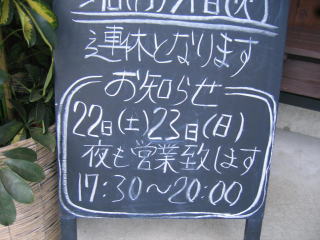 連休となります
お知らせ
22日(土)23日(日)
夜も営業致します
17:30～20:00